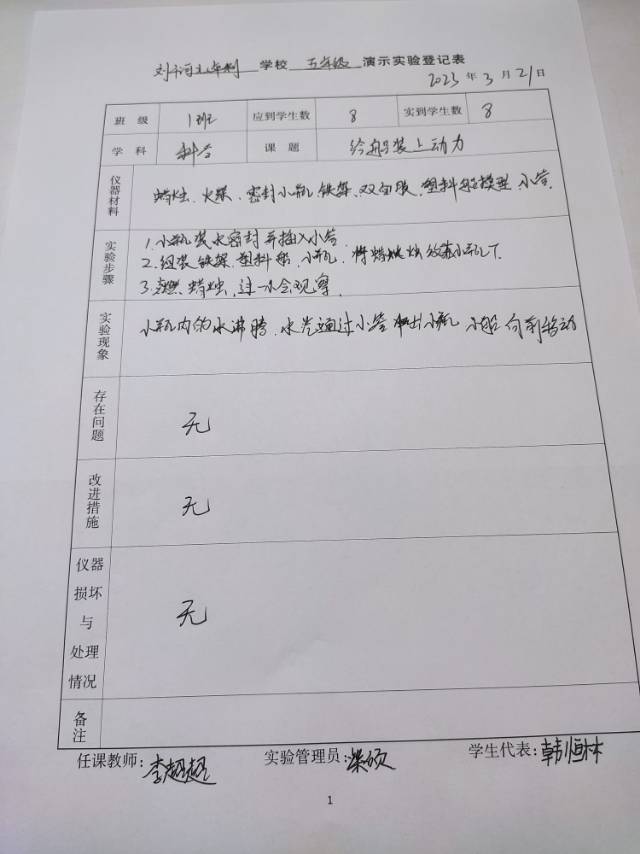 刘河九年制 学校 五年级 演示实验登记表
2023 年 3 月 21 日
班 级 1班 应到学生数 8 实到学生数 8
学 科 科学 课 题 给船装上动力
仪器材料 蜡烛、火柴、密封小瓶、铁架、双面胶、塑料船模型、小管.
实验步骤 1.小瓶装水密封并插入小管.
2.组装铁架.塑料船、小瓶、将蜡烛放在小瓶下
3.点燃蜡烛,过一会观察
实验现象 小瓶内的水沸腾.水汽通过小管 小瓶 小船向前移动
存在问题 无
改进措施 无
仪器损坏与处理情况 无
备注
任课教师:李超超 实验管理员:梁硕 学生代表:韩恒林
1